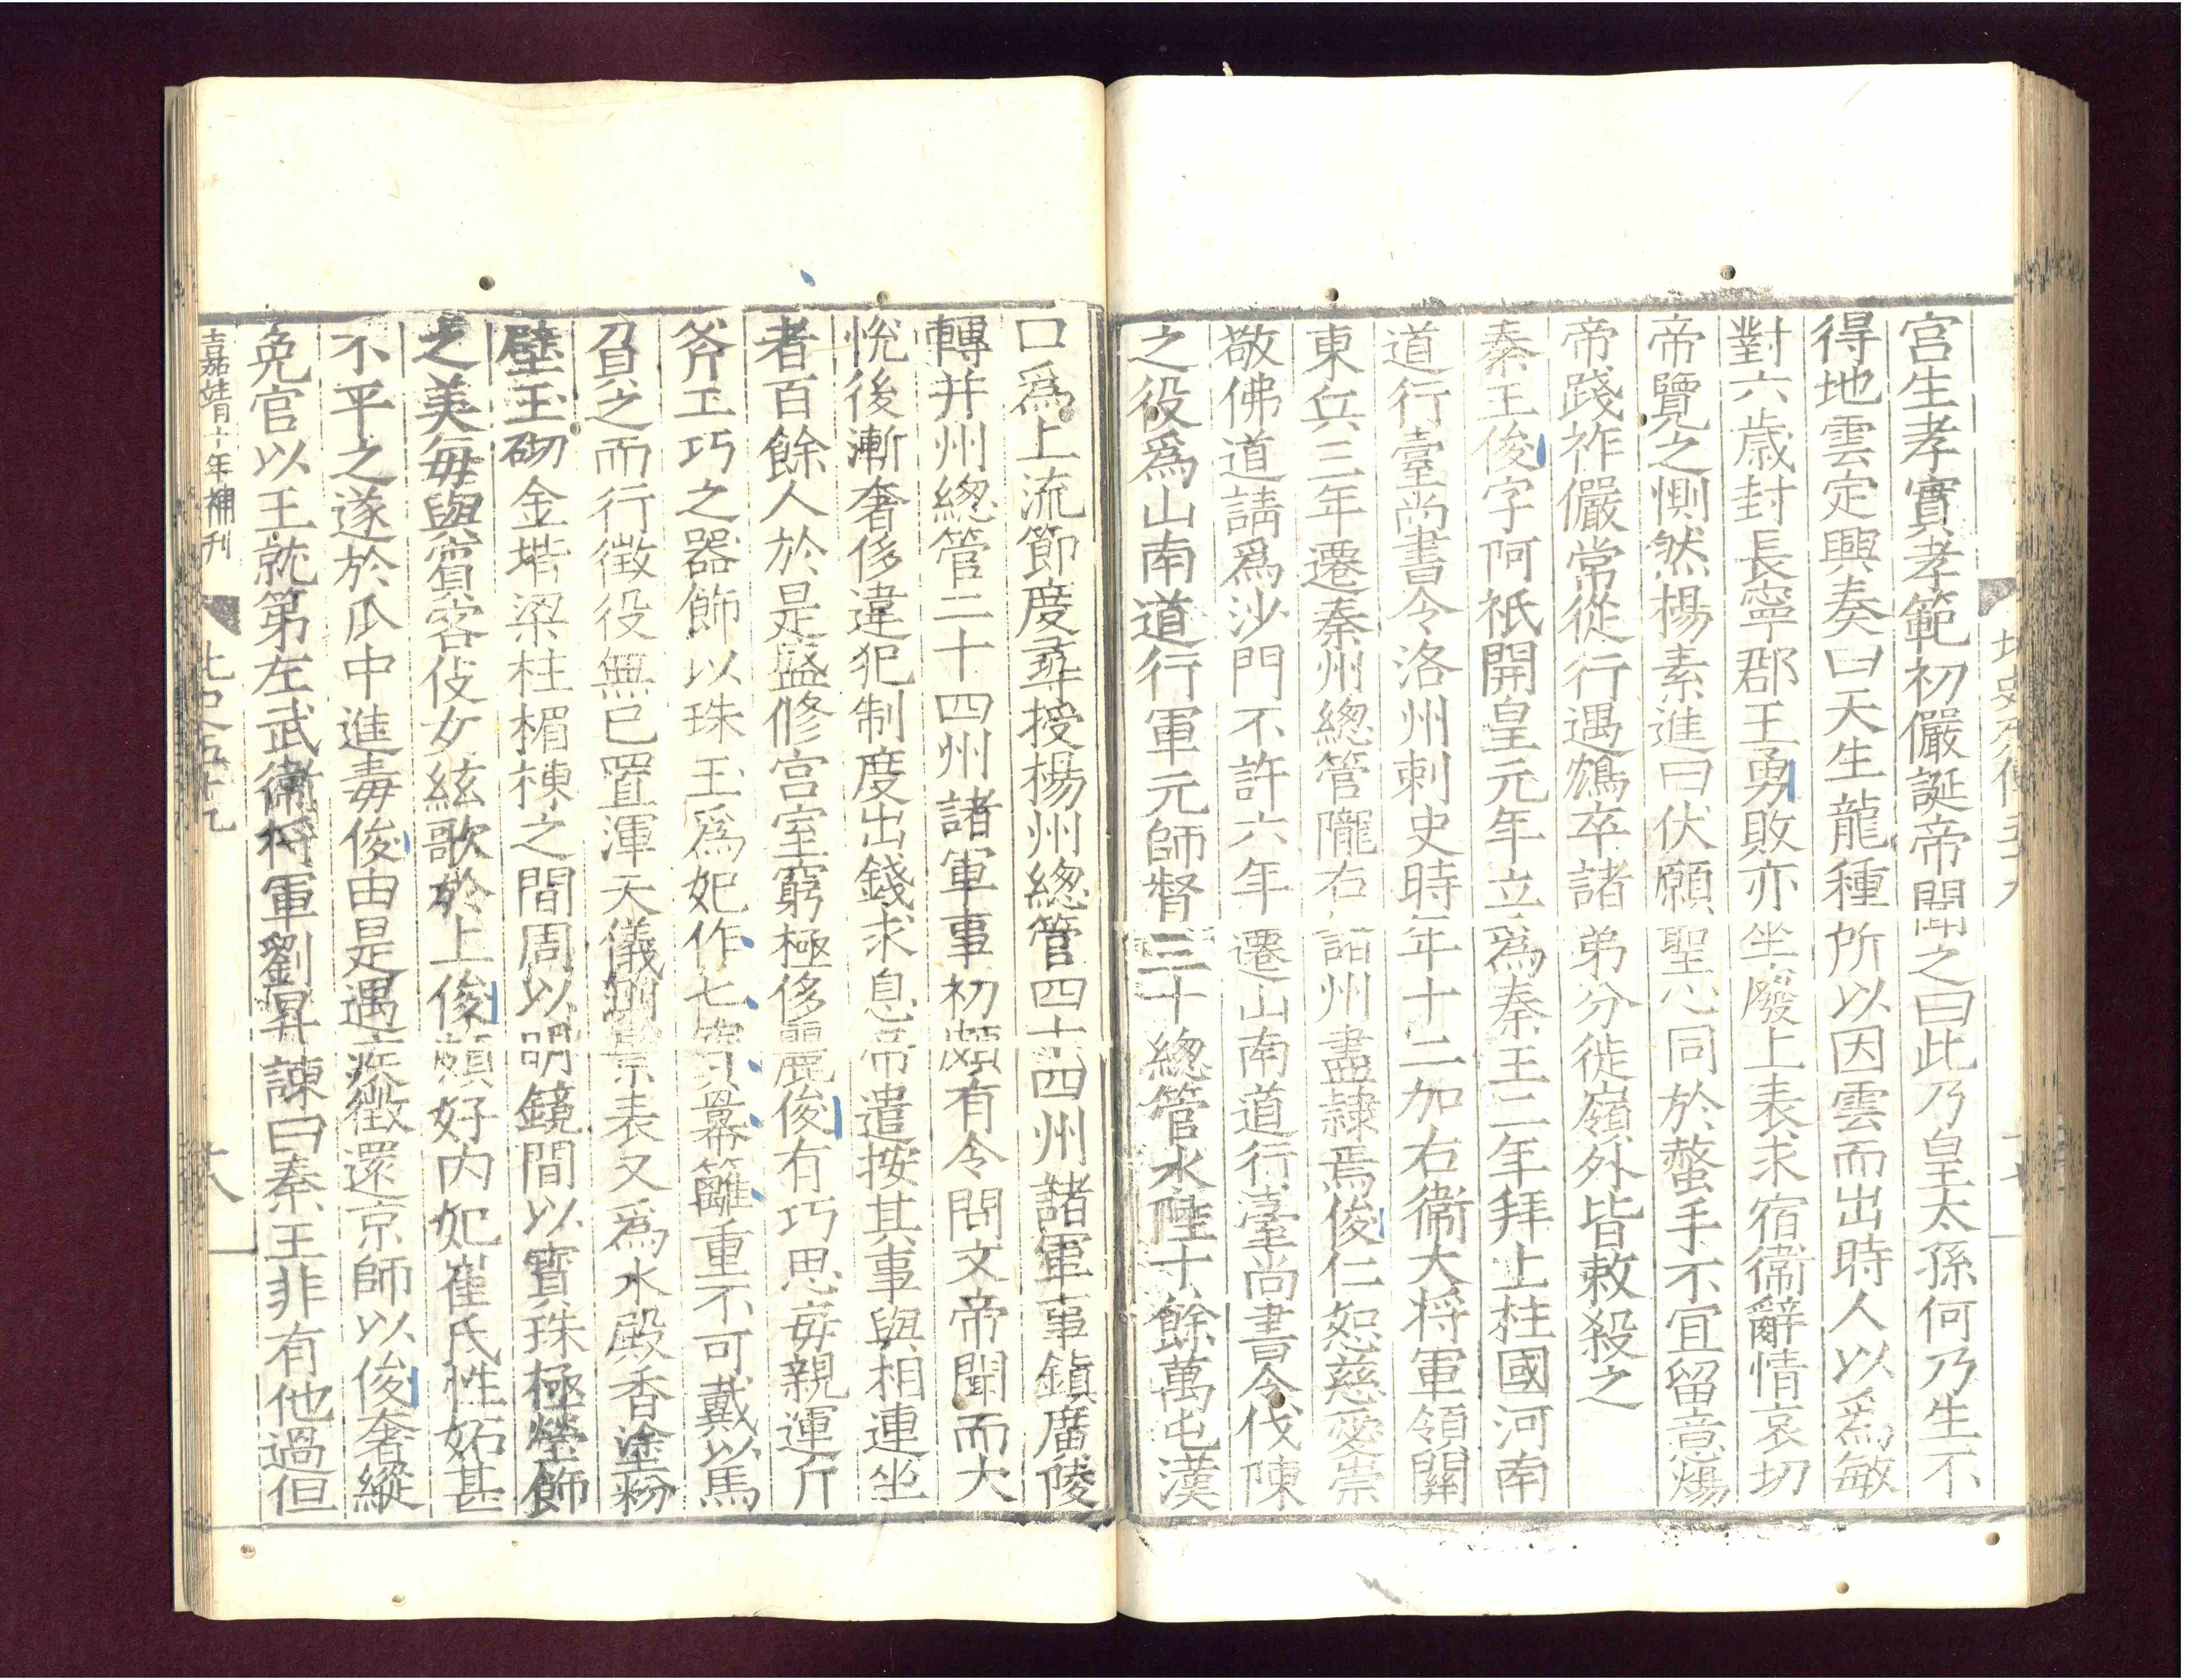 宮生孝實孝範初儼誕帝聞之曰此乃皇太孫何乃生不
得地雲定興奏曰天生龍種所以因雲而出時人以爲敏
對六歲封長寧郡王勇敗亦坐廢上表求宿衞辭情哀切
帝覽之惻然楊素進曰伏願聖心同於螫手不宜留意煬
帝踐祚儼常從行遇鴆卒諸弟分徙嶺外皆敕殺之
秦王俊字阿祇開皇元年立爲秦王二年拜上柱國河南
道行臺尚書令洛州刺史時年十二加右衞大將軍領關
東兵三年遷秦州總管隴右諸州盡隷焉俊仁恕慈愛崇
敬佛道請爲沙門不許六年遷山南道行臺尚書令伐陳
之役爲山南道行軍元師督三十總管水陸十餘萬屯漢
口爲上流節度尋授楊州總管四十四州諸軍事鎮廣陵
轉并州總管二十四州諸軍事初頗有令問文帝聞而大
悅後漸奢侈違犯制度出錢求息帝遣按其事與相連坐
者百餘人於是盛修宮室窮極侈麗俊有巧思每親運斤
斧工巧之器飾以珠玉爲妃作七寶羃䍦重不可戴以馬
負之而行徵役無已置渾天儀測景表又爲水殿香塗粉
壁玉砌金堦梁柱楣棟之間周以明鏡間以寳珠極瑩飾
之美每與賓客伎女絃歌於上俊頗好內妃崔氏性妬甚
不平之遂於瓜中進毒俊由是遇疾徵還京師以俊奢縱
免官以王就第左武衞將軍劉昇諫曰秦王非有他過但
嘉靖十年補刊
北史五十九